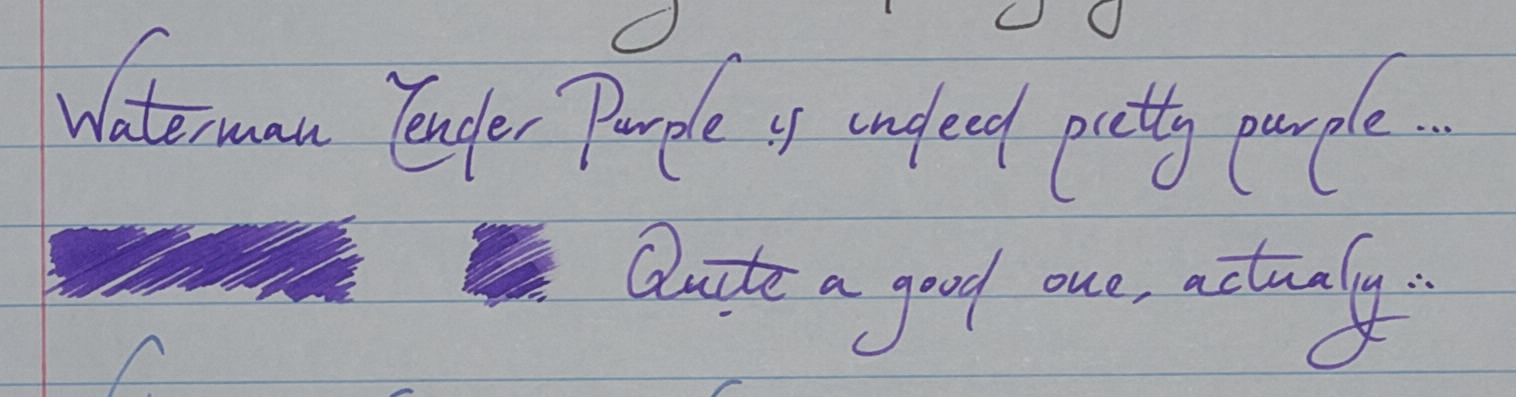 Waterman Tender Purple is indeed pretty purple...
Quite a good one, actually...